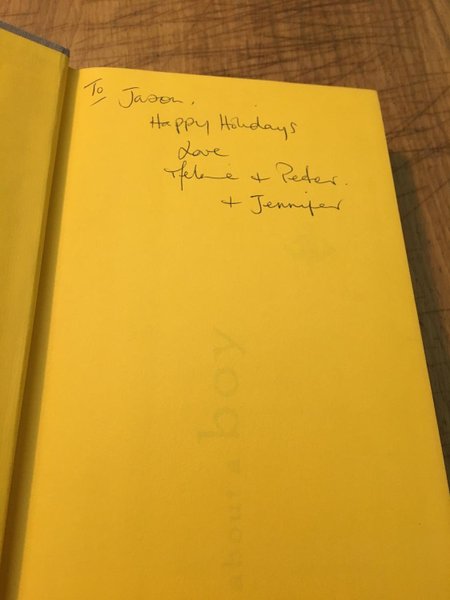 To Jason,
Happy Holidays
Love
Helene + Peter.
+ Jennifer
about a boy